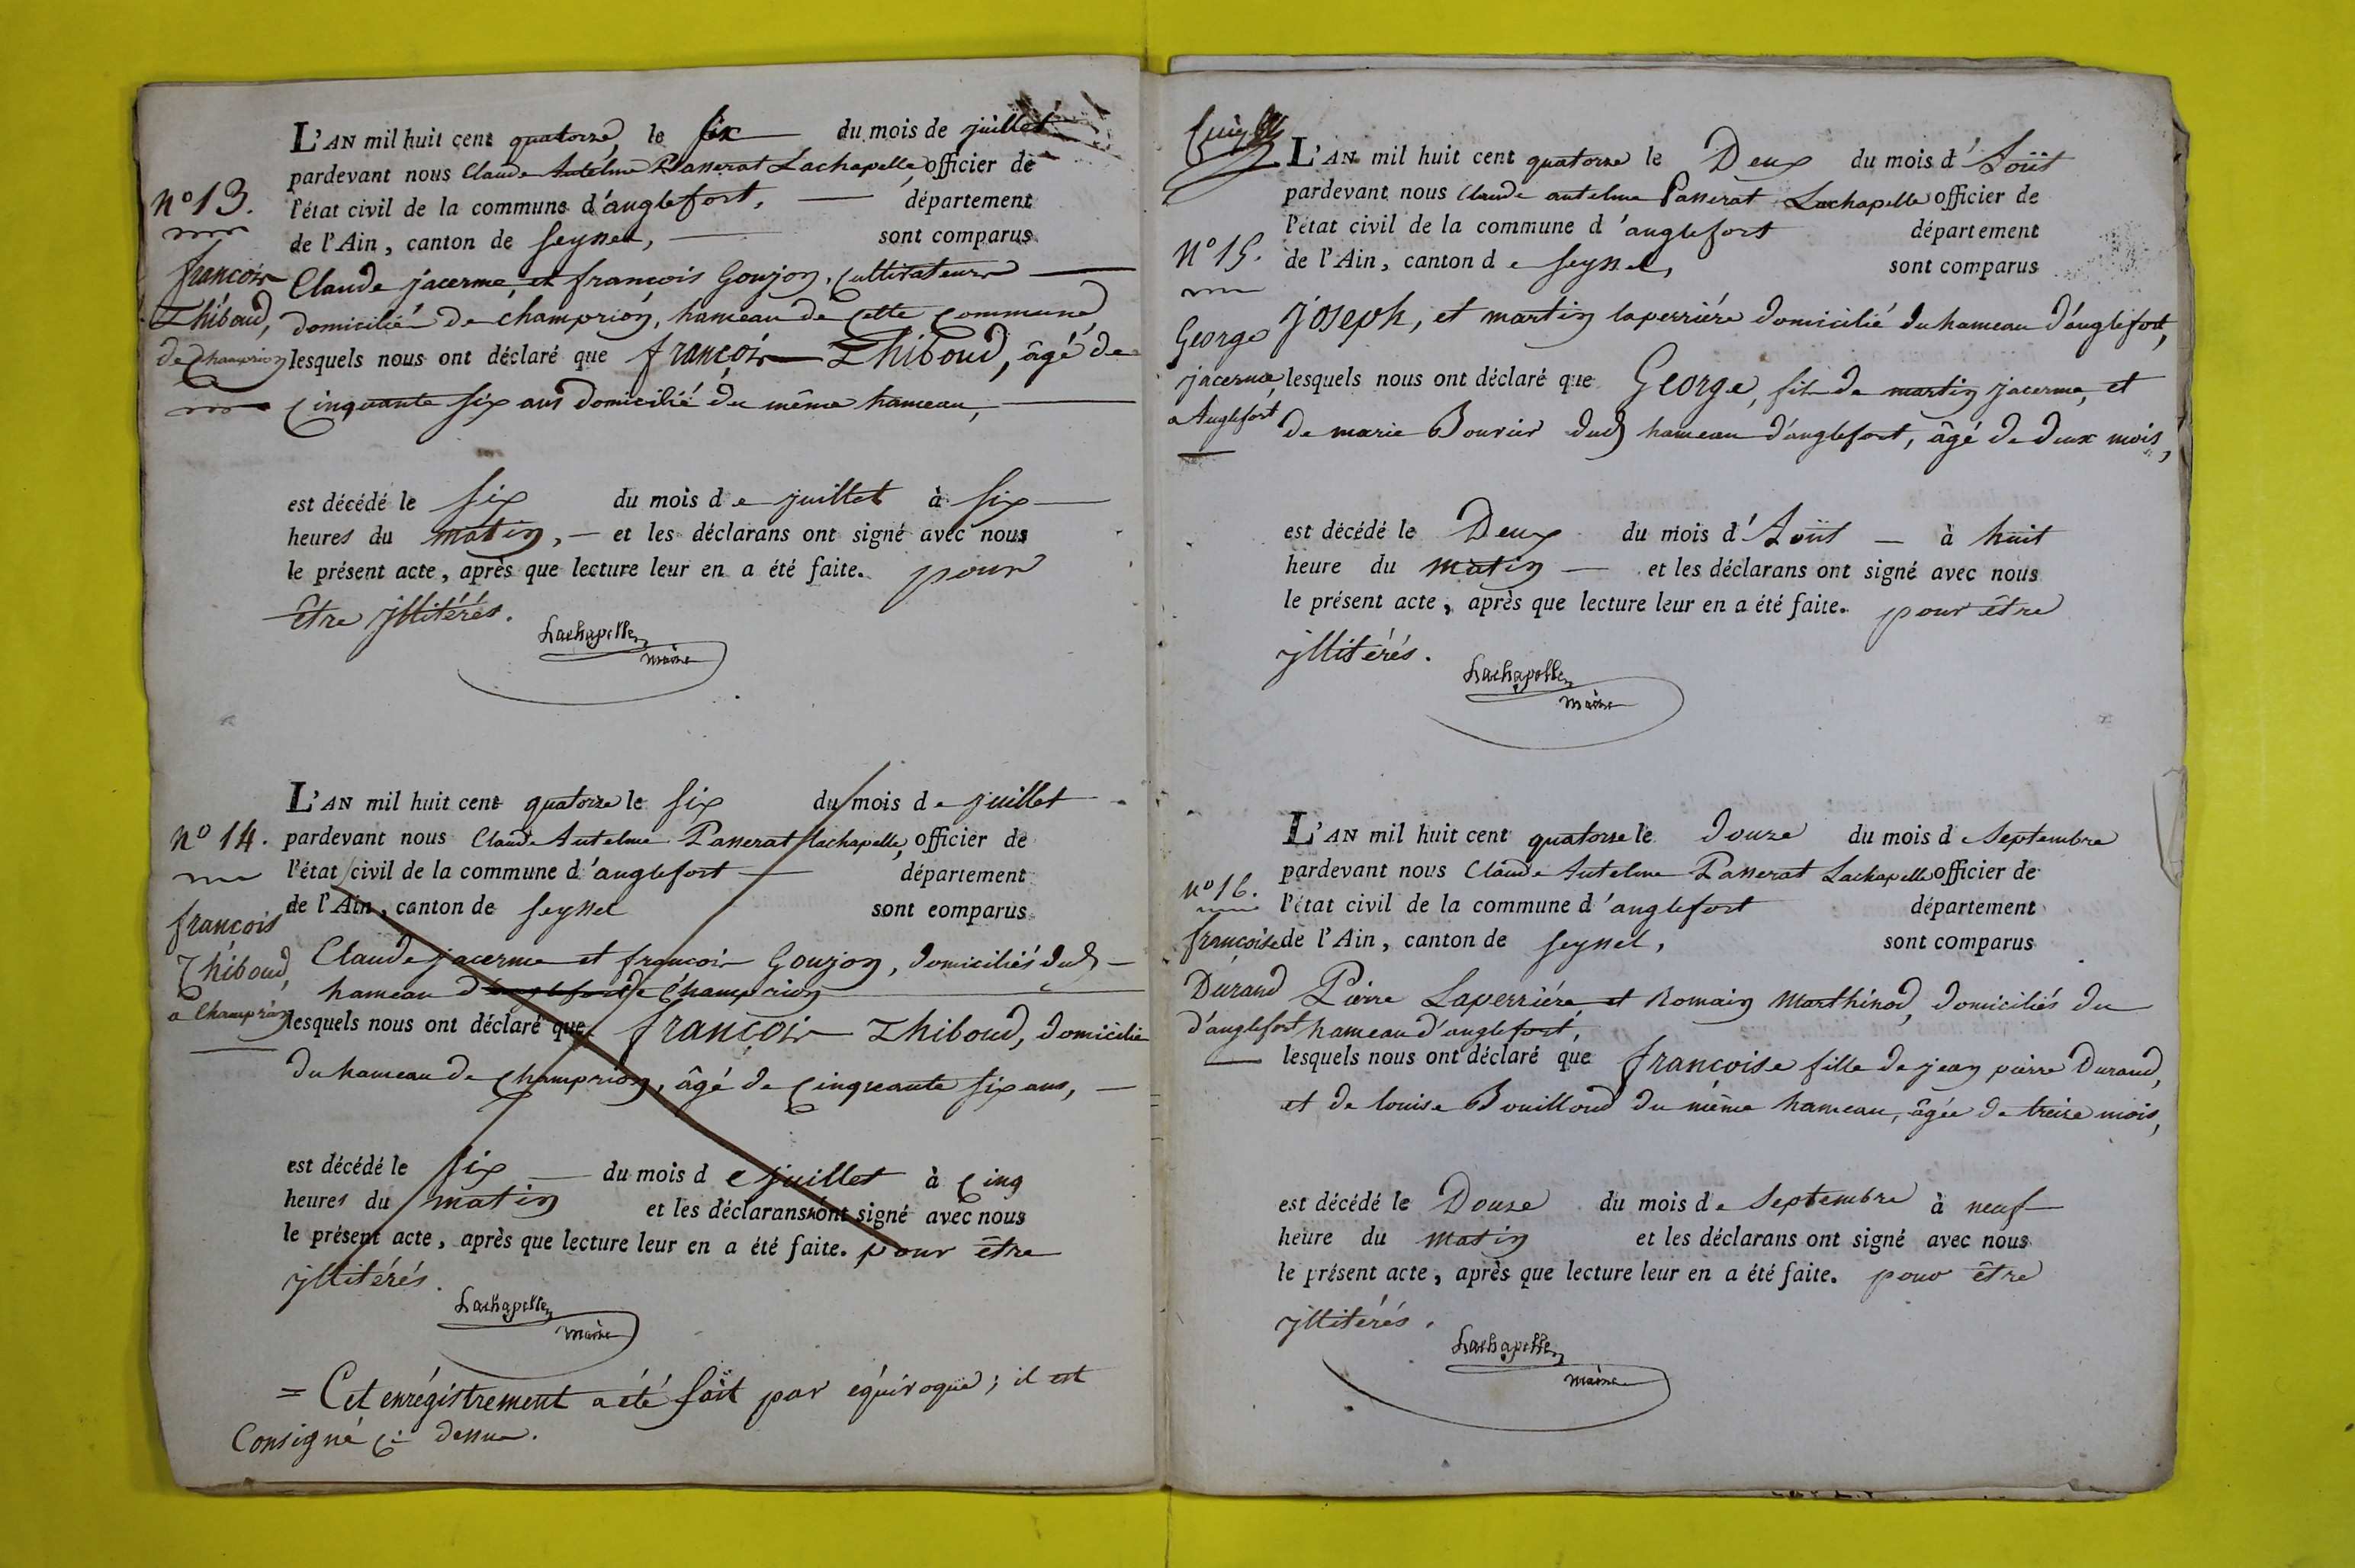 L'AN mil huit cent quatorze, le six du mois de juillet
pardevant nous Claude Antelme Passerat Lachapelle, officier de
n° 13. l'état civil de la commune d'anglefort, département
de l'Ain, canton de seyssel, sont comparus
françois Claude jacerme, et françois Goujon, cultivateurs
Thiboud, domiciliés de champrion, hameau de cette commune
de champrion lesquels nous ont déclaré que françois Thiboud, âgé de
cinquante six ans domicilié du même hameau,
est décédé le six du mois de juillet à six
heures du matin, et les déclarans ont signé avec nous
le présent acte, après que lecture leur en a été faite. pour
être jllitérés.
Lachapelle
maire
L'AN mil huit cent quatorze le six du mois de juillet
n° 14. pardevant nous Claude Antelme Passerat lachapelle, officier de
l'état civil de la commune d'anglefort département
de l'Ain, canton de seyssel sont comparus
françois
Claude jacerme et françois Goujon, domiciliés dud
Thiboud, hameau d anglefort de Champrion
a Champrion lesquels nous ont déclaré que françois Thiboud, domicilié
du hameau de champrion, âgé de cinquante six ans,
est décédé le six du mois de juillet à cinq
heures du matin et les déclarans ont signé avec nous
le présent acte, après que lecture leur en a été faite. pour être
jllitérés.
Lachapelle
maire
= Cet enrégistrement a été fait par équivoque; il est
Consigné ci dessus.
L'AN mil huit cent quatorze le Deux du mois d'Août
pardevant nous Claude antelme Passerat Lachapelle officier de
l'état civil de la commune d'anglefort département
n° 15. de l'Ain, canton de seyssel, sont comparus
George joseph, et martin laperriére domicilié du hameau d'anglefort,
jacerme lesquels nous ont déclaré que George, fils de martin jacerme, et
a Anglefort de marie Bouvier dud hameau d'anglefort, âgé de deux mois,
est décédé le Deux du mois d'Août à huit
heure du matin et les déclarans ont signé avec nous
le présent acte, après que lecture leur en a été faite. pour être
jllitérés.
Lachapelle
maire
L'AN mil huit cent quatorze le douze du mois de Septembre
pardevant nous Claude Antelme Passerat Lachapelle officier de
n° 16. l'état civil de la commune d'anglefort département
françoise de l'Ain, canton de seyssel, sont comparus
Durand Pierre Laperriére et Romain Marthinod, domiciliés du
d'anglefort hameau d'anglefort,
lesquels nous ont déclaré que françoise fille de jean pierre Durand,
et de louise Bouilloud du même hameau, âgée de treize mois,
est décédé le Douze du mois de Septembre à neuf
heure du matin et les déclarans ont signé avec nous
le présent acte, après que lecture leur en a été faite. pour être
jllitérés.
Lachapelle
maire